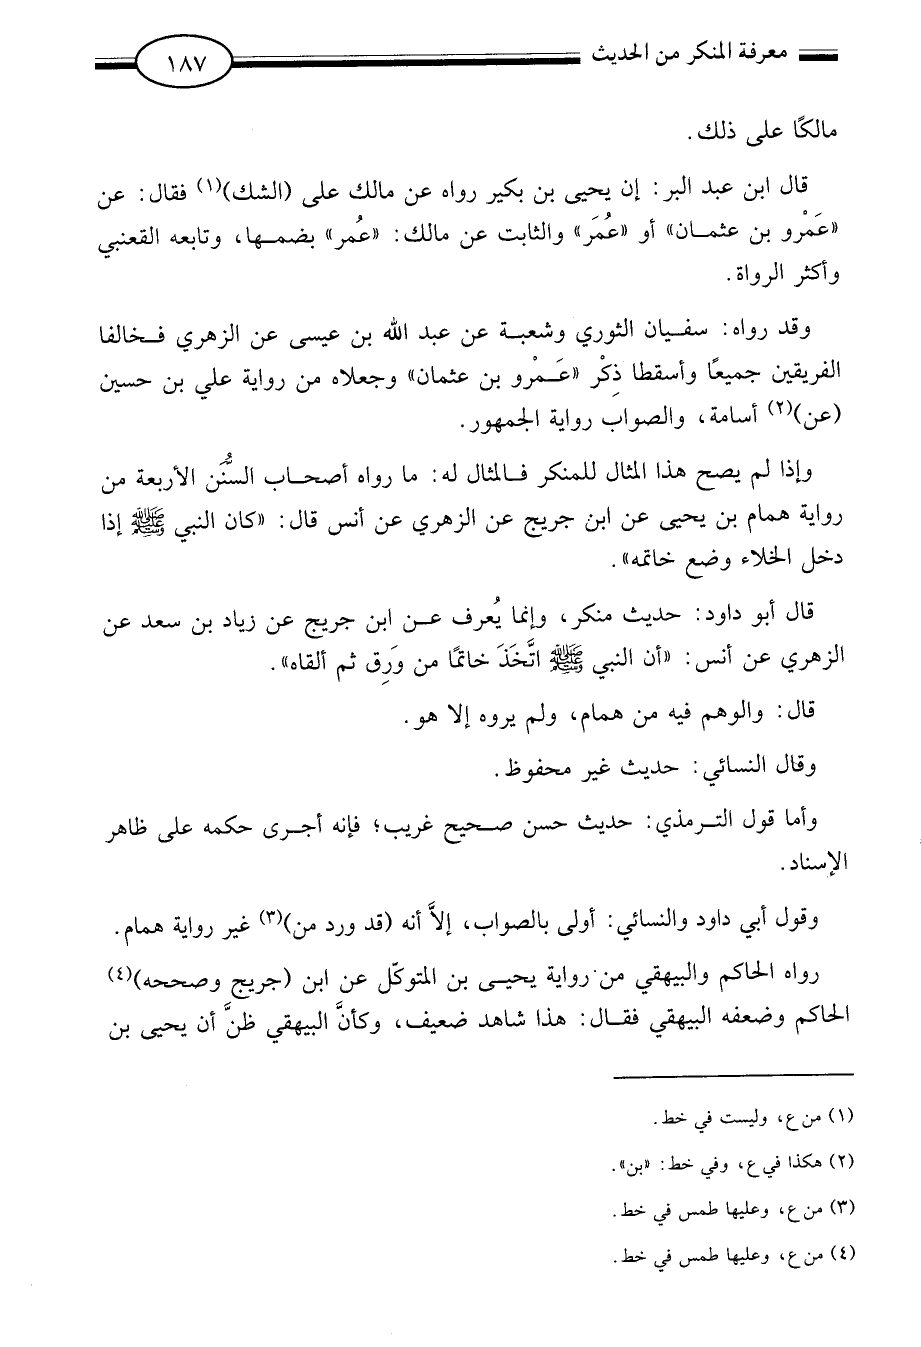 معرفة المنكر من الحديث
١٨٧
مالكًا على ذلك.
قال ابن عبد البر: إن يحيى بن بكير رواه عن مالك على (الشك)(١) فقال: عن
«عَمْرو بن عثمان» أو «عُمَر» والثابت عن مالك: «عُمر» بضمها، وتابعه القعنبي
وأكثر الرواة.
وقد رواه: سفيان الثوري وشعبة عن عبد الله بن عيسى عن الزهري فخالفا
الفريقين جميعًا وأسقطا ذِكْر «عَمْرو بن عثمان» وجعلاه من رواية علي بن حسين
(عن)(٢) أسامة، والصواب رواية الجمهور.
وإذا لم يصح هذا المثال للمنكر فالمثال له: ما رواه أصحاب السُّنن الأربعة من
رواية همام بن يحيى عن ابن جريج عن الزهري عن أنس قال: «كان النبي ﷺ إذا
دخل الخلاء وضع خاتمه».
قال أبو داود: حديث منكر، وإنما يُعرف عن ابن جريج عن زياد بن سعد عن
الزهري عن أنس: «أن النبي ﷺ اتَّخَذَ خاتمًا من وَرِق ثم ألقاه».
قال: والوهم فيه من همام، ولم يروه إلا هو.
وقال النسائي: حديث غير محفوظ.
وأما قول الترمذي: حديث حسن صحيح غريب؛ فإنه أجرى حكمه على ظاهر
الإسناد.
وقول أبي داود والنسائي: أولى بالصواب، إلاَّ أنه (قد ورد من)(٣) غير رواية همام.
رواه الحاكم والبيهقي من رواية يحيى بن المتوكّل عن ابن (جريج وصححه)(٤)
الحاكم وضعفه البيهقي فقال: هذا شاهد ضعيف، وكأنَّ البيهقي ظنَّ أن يحيى بن
(١) من ع، وليست في خط.
(٢) هكذا في ع، وفي خط: «بن».
(٣) من ع، وعليها طمس في خط.
(٤) من ع، وعليها طمس في خط.